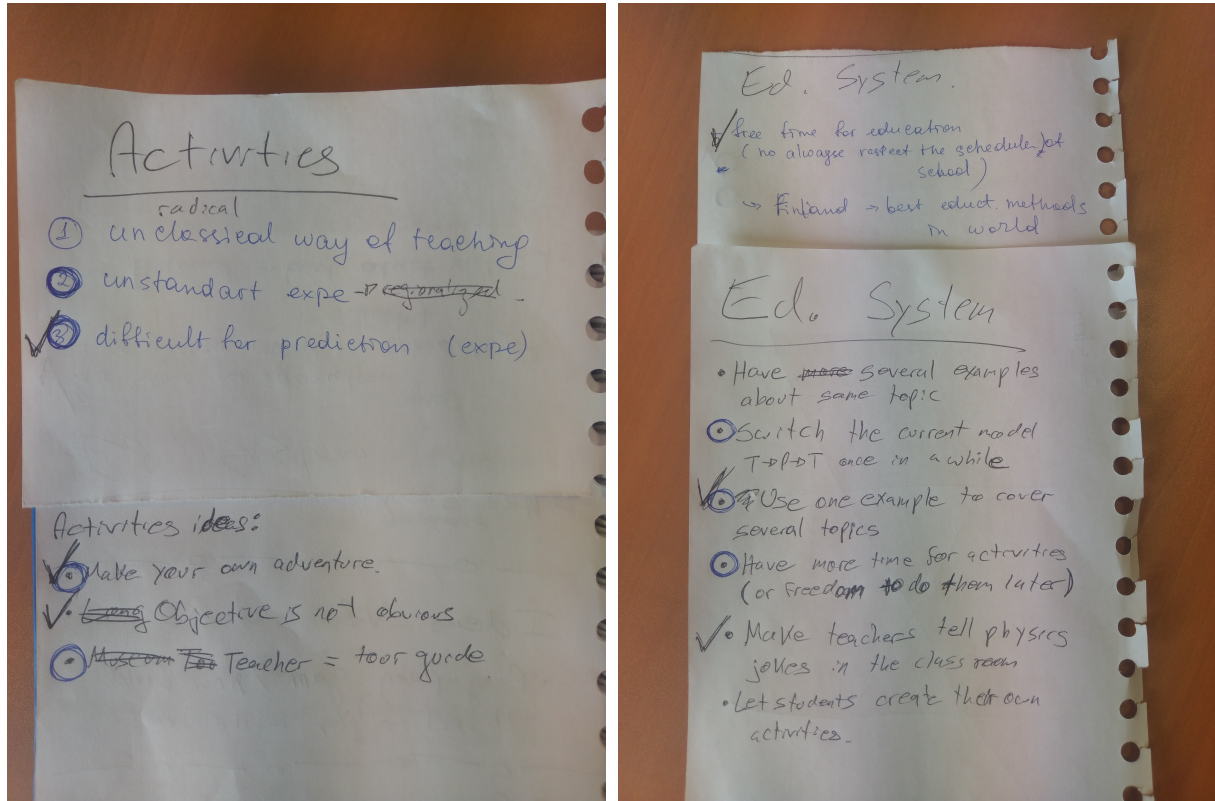 Activities
radical
1 unclassical way of teaching
2 unstandart expe → regionalized
3 difficult for prediction (expe)
Activities ideas:
Make your own adventure.
Objective is not obvious
Teacher = toor guide
Ed. System.
free time for education
(no alwayse respect the scheduler of
school)
↪ Finland → best educt. methods
in world
Ed. System
• Have more several examples
about same topic
• Switch the current model
T→P→T once in a while
• Use one example to cover
several topics
• Have more time for activities
(or freedom to do them later)
• Make teachers tell physics
jokes in the class room
• Let students create their own
activities.